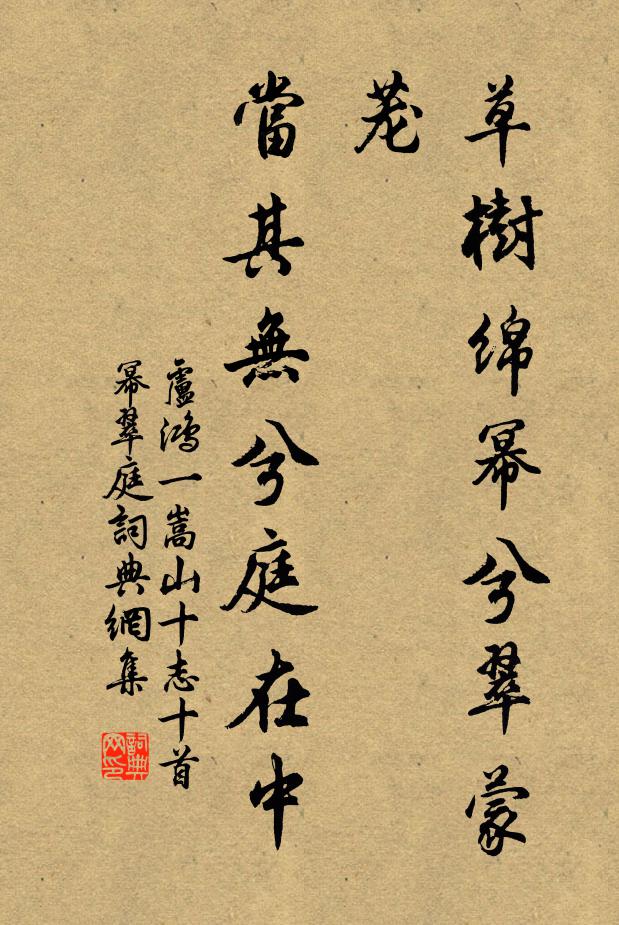 草樹綿幂兮翠蒙
蘢
當其無兮庭在中
盧鴻一嵩山十志十首
幂翠庭詞典網集
詞典
网印